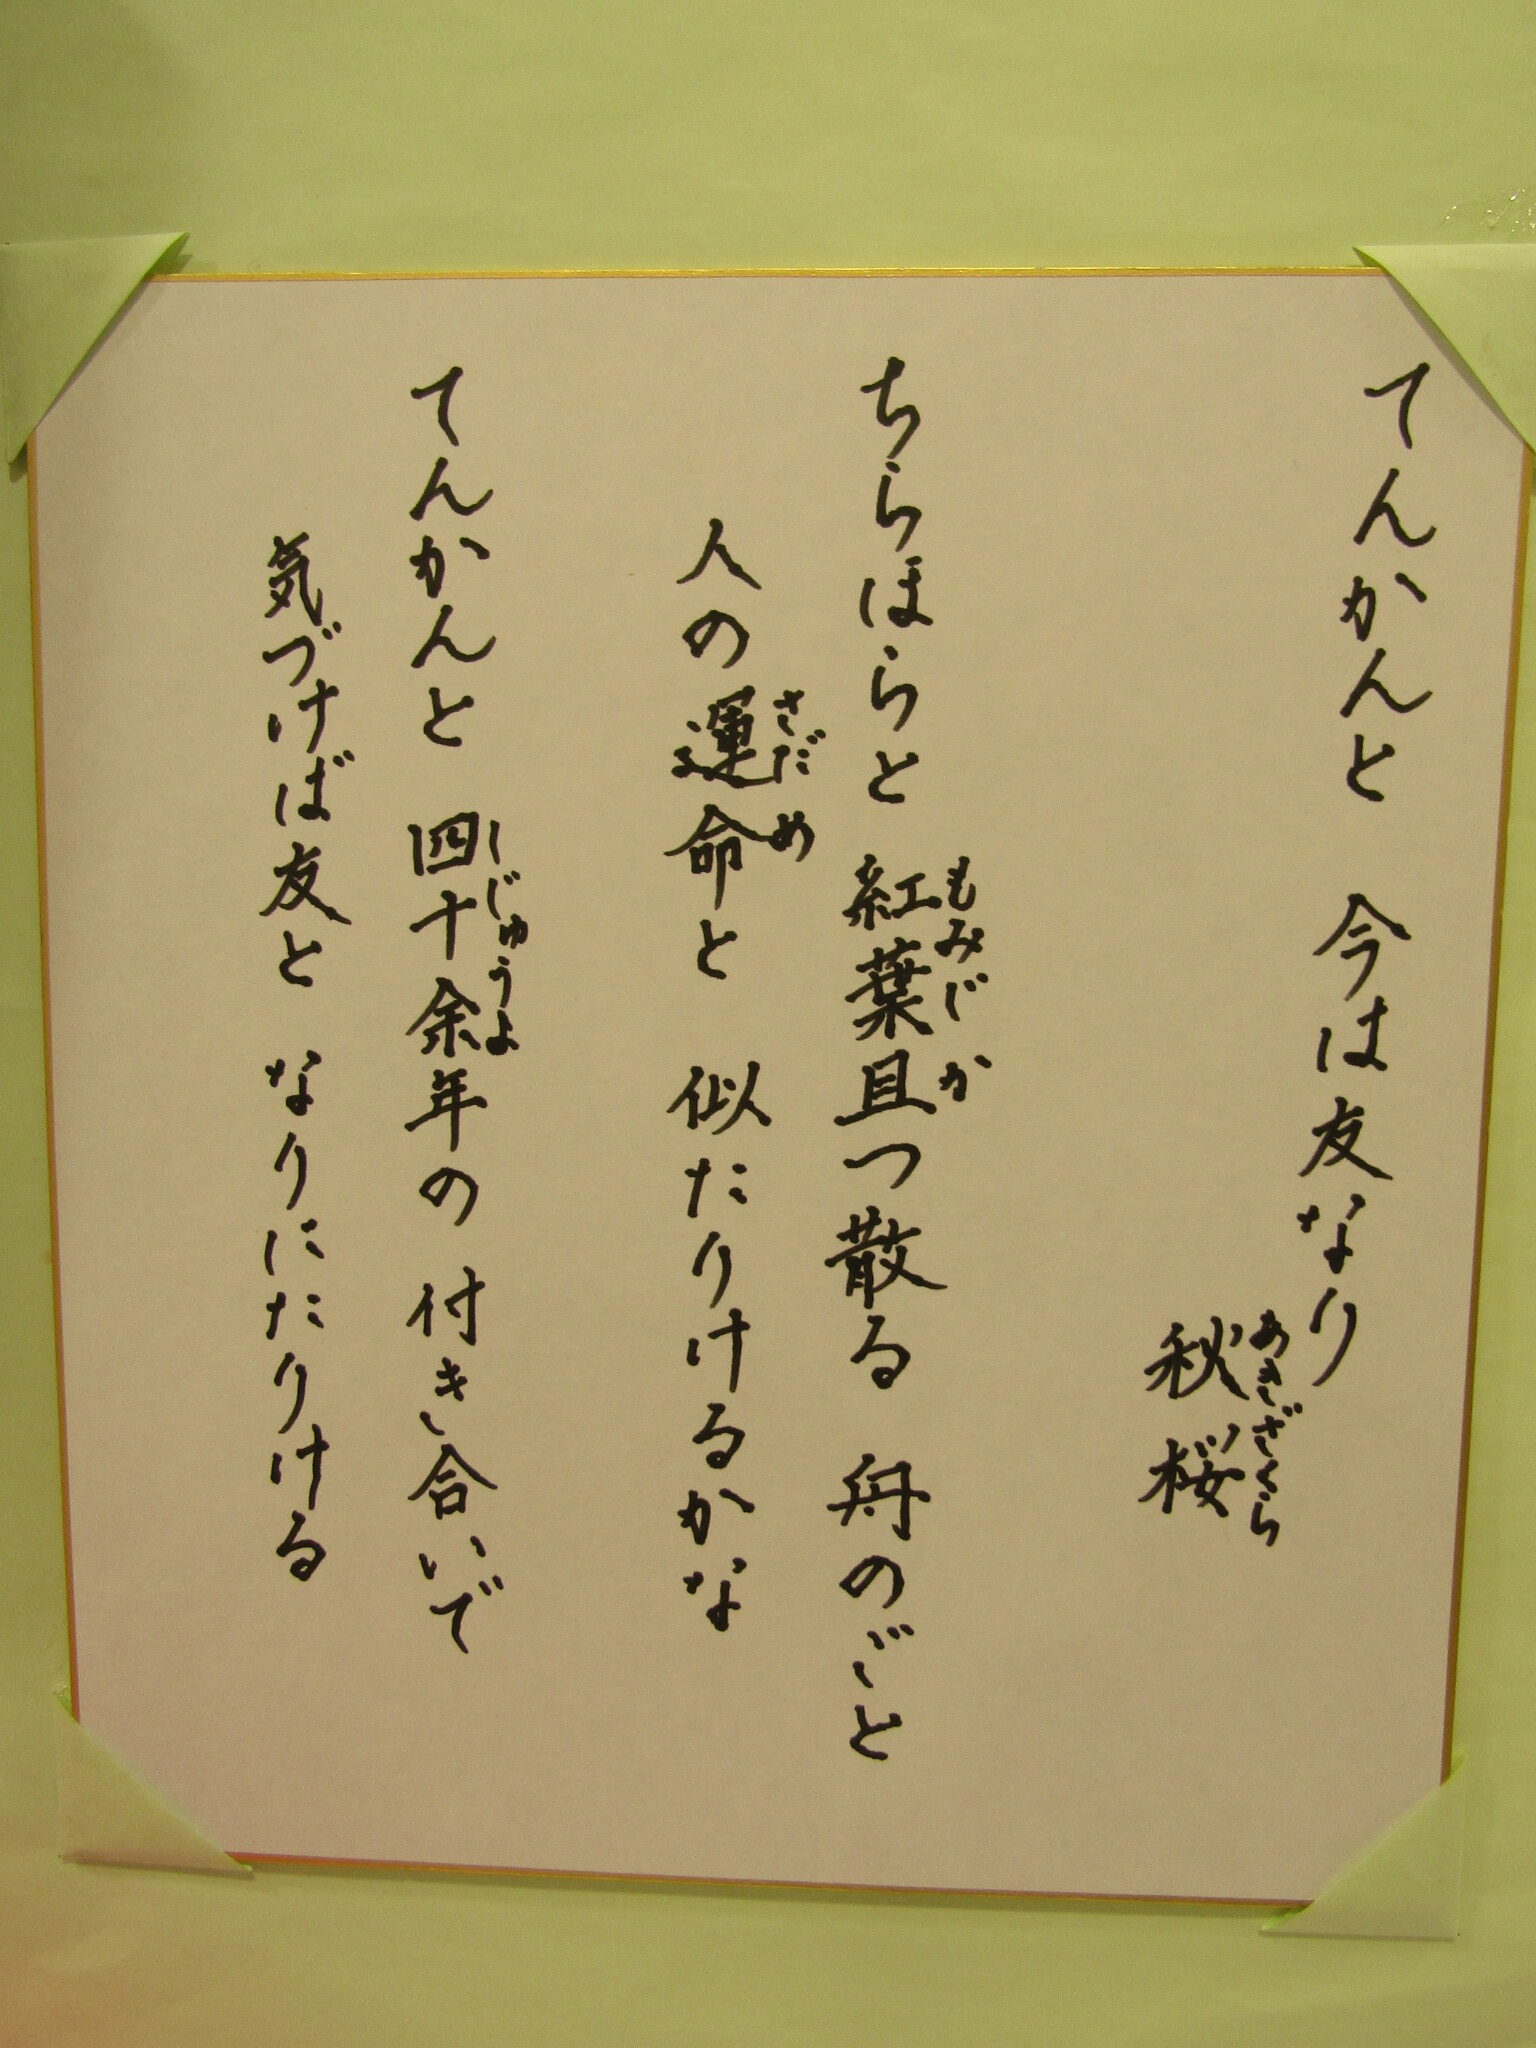 てんかんと 今は友なり
秋桜
あきざくら
ちらほらと 紅葉且つ散る 舟のごと
もみじ か
人の運命と 似たりけるかな
さだめ
てんかんと 四十余年の 付き合いで
しじゅうよ
気づけば友と なりにたりける